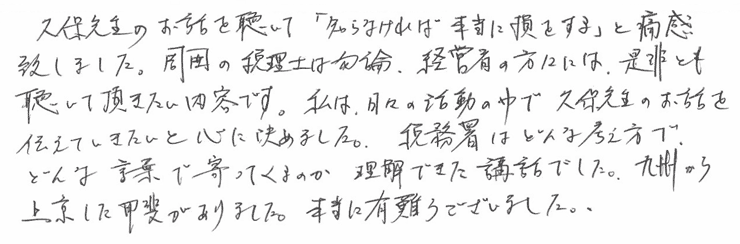 久保先生のお話を聴いて「知らなければ本当に損をする」と痛感
致しました。周囲の税理士は勿論、経営者の方々には、是非とも
聴いて頂きたい内容です。私は、日々の活動の中で久保先生のお話を
伝えていきたいと心に決めました。税務署はどんな考え方で、
どんな言葉で寄ってくるのか理解できた講話でした。九州から
上京した甲斐がありました。本当に有難うございました。